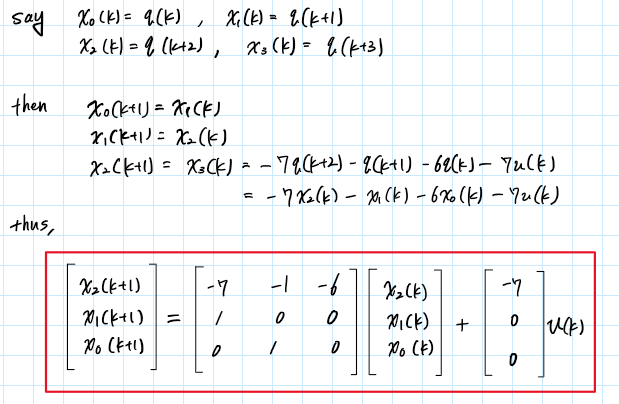 say x₀(k) = q(k) , x₁(k) = q(k+1)
x₂(k) = q(k+2) , x₃(k) = q(k+3)
then x₀(k+1) = x₁(k)
x₁(k+1) = x₂(k)
x₂(k+1) = x₃(k) = -7q(k+2) - q(k+1) - 6q(k) - 7u(k)
= -7x₂(k) - x₁(k) - 6x₀(k) - 7u(k)
thus,
[x₂(k+1) x₁(k+1) x₀(k+1)] = [-7 -1 -6; 1 0 0; 0 1 0] [x₂(k) x₁(k) x₀(k)] + [-7 0 0] u(k)